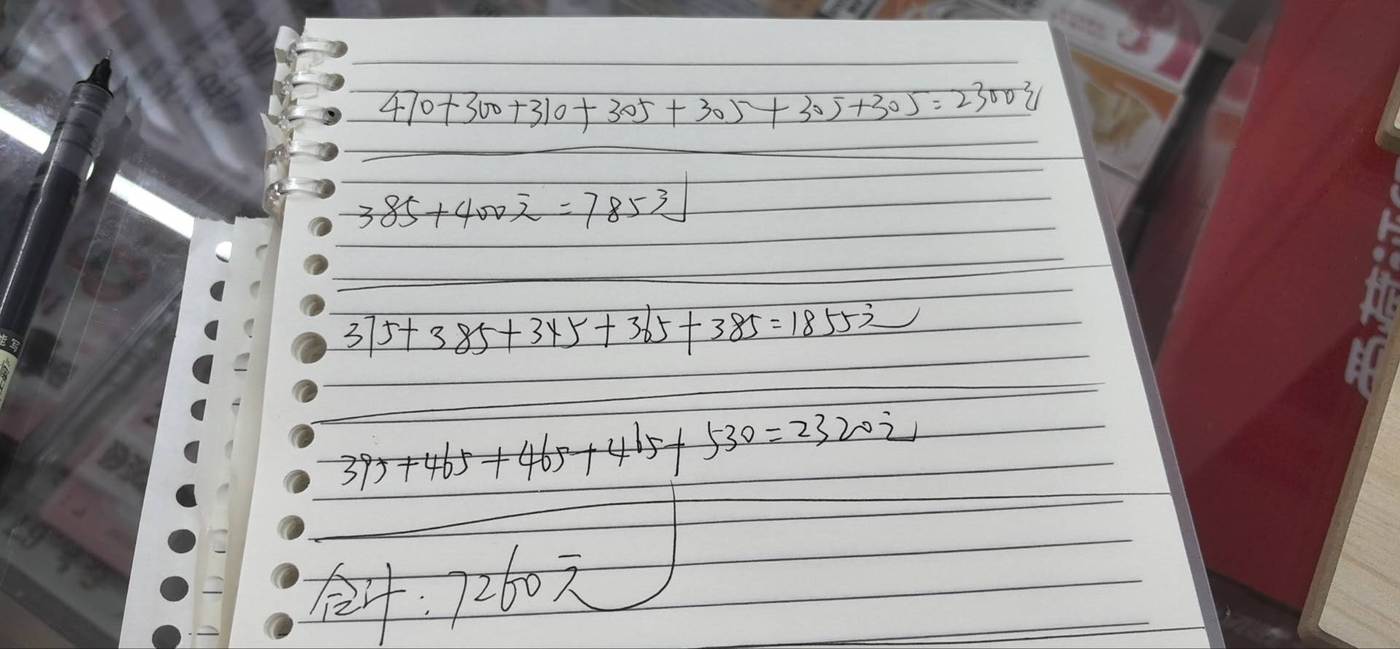 470+300+310+305+305+305+305=2300元
385+400元=785元
375+385+345+365+385=1855元
395+465+465+465+530=2320元
合计:7260元